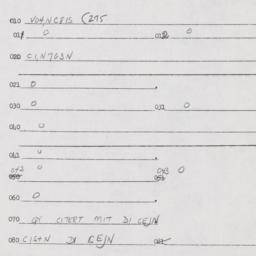 010 VOHNCEIS (275
011 0 012 0
020 CINTGSN
021 0
030 0 031 0
040 0
041 0
042 0 043 0
060 0
070 GY CITERT MIT DI CEJN
080 CISTN DI CEJN 081